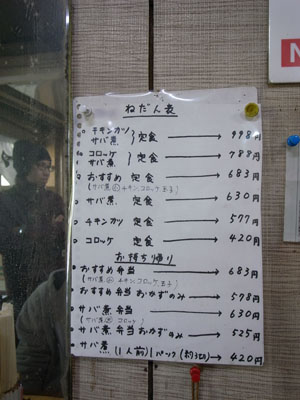 ねだん表
チキンカツ
サバ煮 } 定食 → 998円
コロッケ
サバ煮 } 定食 → 788円
おすすめ 定食 → 683円
サバ煮 定食 → 630円
チキンカツ 定食 → 577円
コロッケ 定食 → 420円
お持ち帰り
おすすめ弁当 → 683円
おすすめ弁当 おかずのみ → 578円
サバ煮 弁当 → 630円
サバ煮 弁当 おかずのみ → 525円
サバ煮 (1人前) 1パック (約3切) → 420円
N